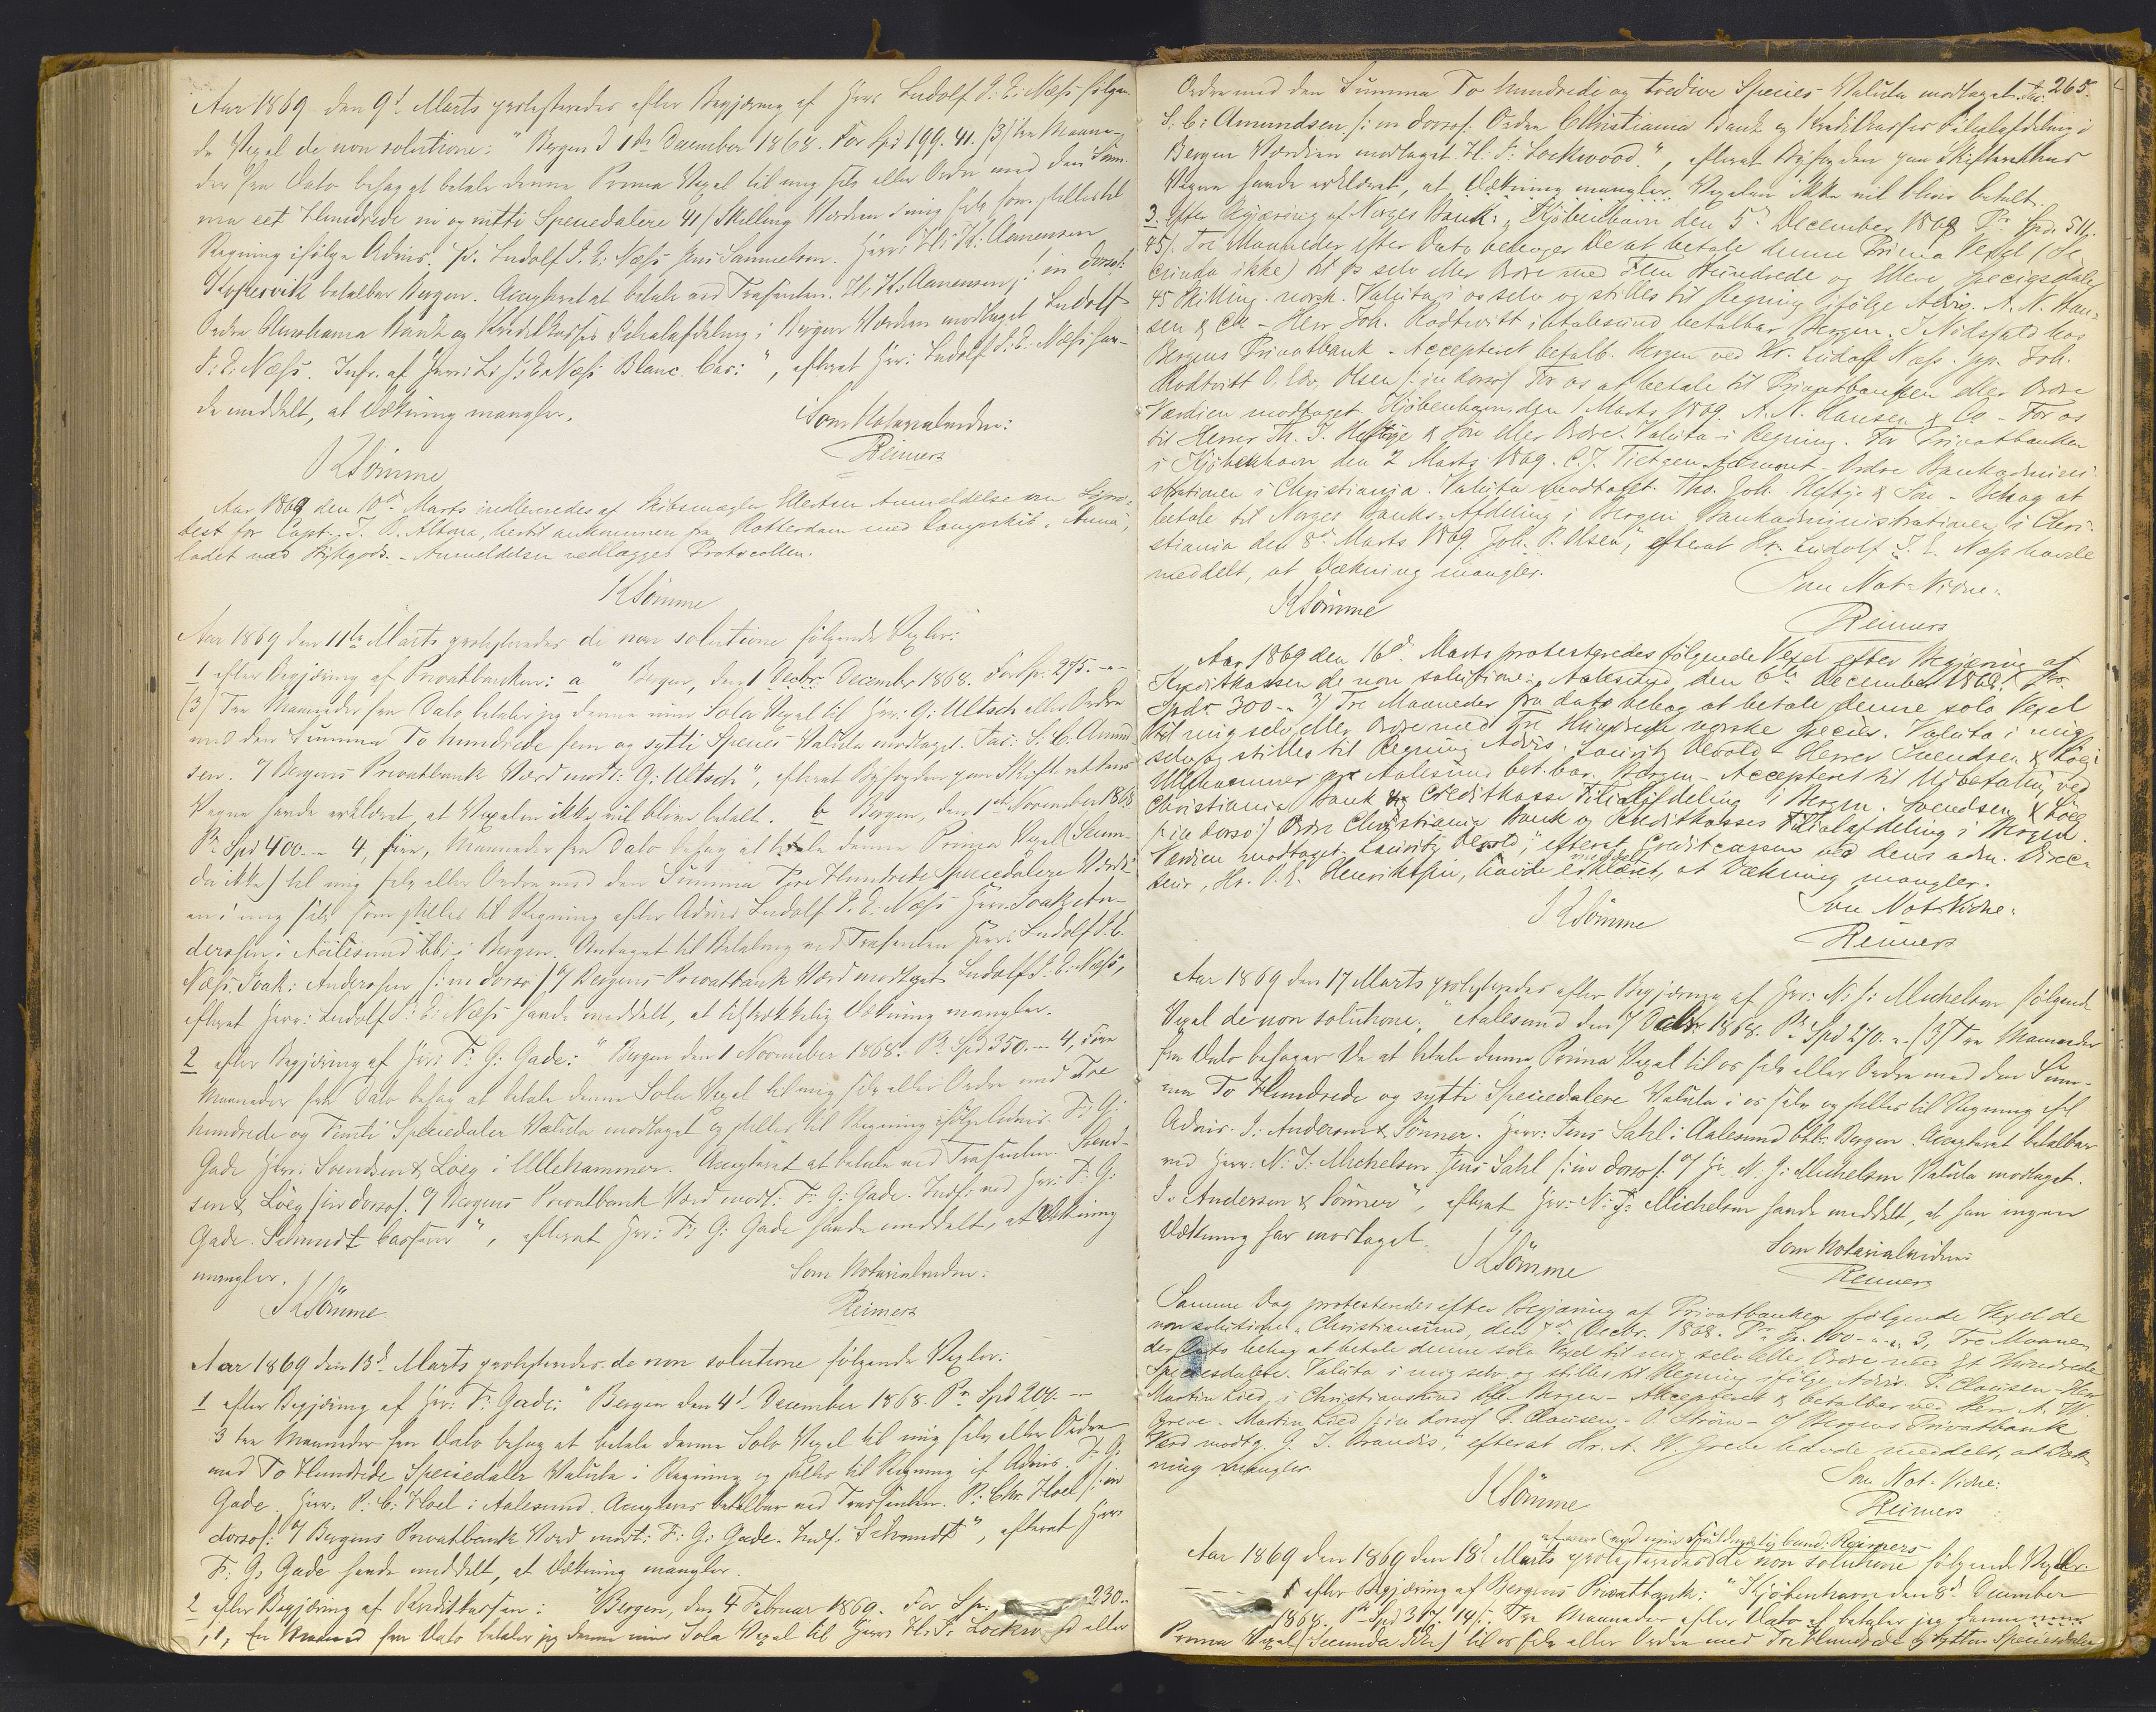 Aar 1869 den 9d Marts protesteredes efter Begjæring af Herr Ludolf J: E: Næss følgen-
de Vexel de non solutione: "Bergen d 1ste December 1868. For Spd 199. 41. (3) tre Maane-
der fra Dato behag at betale denne Prima Vexel til mig selv eller Ordre med den Sum-
ma eet Hundrede ni og nitti Speciedalere 41/ Skilling. Værdien i mig selv som stilles til
Regning ifølge Advis. Ludolf J. E: Næss Jens Samuelsen. Herr: H: K: Aanensen
Kopervik betalbar Bergen. Accepteret at betale ved Trasenten. H: K: Aanensen /: in dorso:
Ordre Christiania Bank og Kreditkasses Filialafdeling i Bergen Værdien modtaget Ludolf
J: E: Næss. Inf. af Herr: L: J: E: Næss Blanc. Cas:", efterat Herr: Ludolf J: E: Næss hav-
de meddelt, at Dækning mangler.
Som Notarialvidne:
KSömme
Reimers
Aar 1869 den 10de Marts indleveredes af Skibsmægler Ellertsen Anmeldelse om Søpro-
test for Capt. J. A. Altona, hertil ankommen fra Rotterdam med Dampskib "Anna",
ladet med Stykgods. - Anmeldelsen vedlægges Protocollen.
KSömme
Aar 1869 den 11te Marts protesteredes de non solutione følgende Vexler:
1 efter Begjæring af Privatbanken: a "Bergen, den 1 Decbr December 1868. For Sp: 275.--
(3) Tre Maaneder fra Dato betaler jeg denne min Sola Vexel til Herr: G: Ultsch eller Ordre
med den Summa To hundrede fem og sytti Species Valuta modtaget. Fac: S: C. Amund-
sen. o/ Bergens Privatbank Værd modt: G: Ultsch", efterat Byfogden paa Skifterettens
Vegne havde erklæret, at Vexelen ikke vil blive betalt. b Bergen, den 1ste November 1868
Pr Spd 400.-- 4, fire, Maaneder fra Dato behag at betale denne Prima Vexel (Secun-
da ikke) til mig selv eller Ordre med den Summa Fire Hundrede Speciedalere Værdi-
en i mig selv som stilles til Regning efter Advis Ludolf J. E: Næss Herr. Isak An-
derssen i Aalesund bb: i Bergen. Antaget til Betaling ved Trasenten Herr Ludolf J. E.
Næss. Isak: Anderssen /: in dorso / o/ Bergens Privatbank Værd modtaget Ludolf J: E: Næss",
efterat Herr: Ludolf J: E: Næss havde meddelt, at tilstrækkelig Dækning mangler.
2 efter Begjæring af Herr: F: G: Gade: "Bergen den 1 November 1868. Pr Spd 350.-- 4, Fire
Maaneder fra Dato behag at betale denne Sola Vexel til mig selv eller Ordre med Tre
hundrede og Femti Speciedaler Valuta modtaget og stilles til Regning ifølge Advis. F: G:
Gade Herr: Svendsen & Löeg i Ullehammer. Accepteret at betale ved Trasenten. Svend-
sen & Löeg /: in dorso /. o/ Bergens Privatbank Værd modt: F: G: Gade. Indf: ved Herr: F: G:
Gade. Schmidt Cassierer", efterat Herr: F: G: Gade havde meddelt, at Dækning
mangler.
Som Notarialvidne:
KSömme
Reimers
Aar 1869 den 13d Marts protesteredes de non solutione følgende Vexler:
1 efter Begjæring af Herr: F: Gade: "Bergen den 4d December 1868. Pr Spd 200.--
3 tre Maaneder fra Dato behag at betale denne Sola Vexel til mig selv eller Ordre
med To Hundrede Speciedaler Valuta i Regning og stilles til Regning if Advis. F. G.
Gade. Herr: P: C: Hoel i Aalesund. Accepteres betalbar ved Trassenten. P: Chr. Hoel /: in
dorso/: o/ Bergens Privatbank Værd modt: F: G: Gade. Indf. Schmidt", efterat Herr
F: G: Gade havde meddelt, at Dækning mangler.
2 efter Begjæring af Kreditkassen: "Bergen, den 4 Februar 1869. For Sp: 230.-
1, En Maaned fra Dato betaler jeg denne min Sola Vexel til Herr H: F: Lockwood eller
265.
Ordre med den Summa To hundrede og tredive Species Valuta modtaget. Fac:
S: C: Amundsen /: in dorso/: Ordre Christiania Bank og Kreditkasses Filialafdeling i
Bergen Værdien modtaget. H. F: Lockwood.", efterat Byfogden paa Skifterettens
Vegne havde erklæret, at Dækning mangler Vexelen ikke vil blive betalt.
3. Efter Begjæring af Norges Bank: "Kjøbenhavn den 5d December 1868 Pr Spd. 511.
45/. Tre Maaneder efter Dato behager De at betale denne Prima Vexel (Se-
cunda ikke) til os selv eller Ordre med Fem Hundrede og Elleve Speciesdaler
45 Skilling norsk. Valuta i os selv og stilles til Regning ifølge Advis. A. N. Han-
sen & Co - Herr Joh. Rodtwitt i Aalesund betalbar Bergen. I Nødsfald hos
Bergens Privatbank - Accepteret betalb. Bergen ved Hr. Ludolf Næss. pp. Joh.
Rodtvitt O. Edv. Olsen /: in dorso/ For os at betale til Privatbanken eller Ordre
Værdien modtaget. Kjöbenhavn den 1 Marts 1869. A. N. Hansen & Co - For os
til Herrer Th. J. Heftye & Søn eller Ordre. Valuta i Regning. For Privatbanken
i Kjöbenhavn den 2 Marts 1869. C. F. Tietgen - Ordre Bankadmini-
strationen i Christiania. Valuta modtaget. Tho. Joh. Heftye & Søn - Behag at
betale til Norges Banks Afdeling i Bergen Bankadministrationen i Chri-
stiania den 8d Marts 1869. Joh. P. Olsen", efterat Hr. Ludolf J. E. Næss havde
meddelt, at Dækning mangler.
Som Not-Vidne:
KSömme
Reimers
Aar 1869 den 16d. Marts protesteredes følgende Vexel efter Begjæring af
Kreditkassen de non solutione: "Aalesund den 6te December 1868. Pr.
Spd. 300-" 3/ Tre Maaneder fra dato behag at betale denne sola Vexel
til mig selv eller Ordre med Tre Hundrede norske Species. Valuta i mig
selv og stilles til Regning Advis. Lauritz Devold - Herrer Svendsen & Löeg i
Ullehammer pr Aalesund bet.bar Bergen - Accepteret til Udbetaling ved
Christiania Bank og Creditkasse Filialafdeling i Bergen. Svendsen & Löeg
/: in dorso:/ Ordre Christiania Bank og Kreditkasses Filialafdeling i Bergen
Værdien modtaget. Lauritz Devold", efterat Creditcassen ved dens adm. Direc-
meddelt
teur, Hr. O. E. Henrikssen, havde erklæret, at Dækning mangler.
Som Not-Vidne:
KSömme
Reimers
Aar 1869 den 17 Marts protesteredes efter Begjæring af Herr: N: J: Michelsen følgende
Vexel de non solutione: "Aalesund den 7 Decbr 1868. Pr Spd 270.-. (3) Tre Maaneder
fra Dato behager De at betale denne Prima Vexel til os selv eller Ordre med den Sum-
ma To Hundrede og sytti Speciedalere Valuta i os selv og stilles til Regning ifl
Advis. J: Anderson & Sönner. Herr: Jens Sahl i Aalesund btlb: Bergen. Accepteret betalbar
ved Herr: N: J: Michelsen. Jens Sahl /: in dorso/: o/ Hr. N. J: Michelsen Valuta modtaget.
J. Anderson & Sönner", efterat Herr: N: J: Michelsen havde meddelt, at han ingen
Dækning har modtaget.
Som Notarialvidne:
KSömme
Reimers
Samme Dag protesteredes efter Begjæring af Privatbanken følgende Vexel de
non solutione: "Christiansund, den 7d Decbr. 1868. Pr Sp. 100-"-" 3, Tre Maane-
der Dato behag at betale denne sola Vexel til mig selv eller Ordre med Et Hundrede
Speciesdalere. Valuta i mig selv og stilles til Regning ifölge Advis. P. Clausen - Herr
Martin Lied i Christianssund btlb. Bergen - Accepteret & betalbar ved Herr A. W.
Greve. Martin Lied /: in dorso/ P. Clausen. - O. Ström - o/ Bergens Privatbank
Værd modtg. G. J. Brandis", efterat Hr. A. W. Greve havde meddelt, at Dæk-
ning mangler.
Som Not-Vidne:
KSömme
Reimers
Reimers
Aar 1869 den 1869 den 18d Marts protesteredes de non solutione følgende Vexler.
1 efter Begjæring af Bergens Privatbank: "Kjöbenhavn den 8d December
1868. Pr Spd 317. 14/: Tre Maaneder efter Dato betaler jeg denne min
Prima Vexel (Secunda ikke) til os selv eller Ordre med Tre Hundrede og sytten Speciesdaler